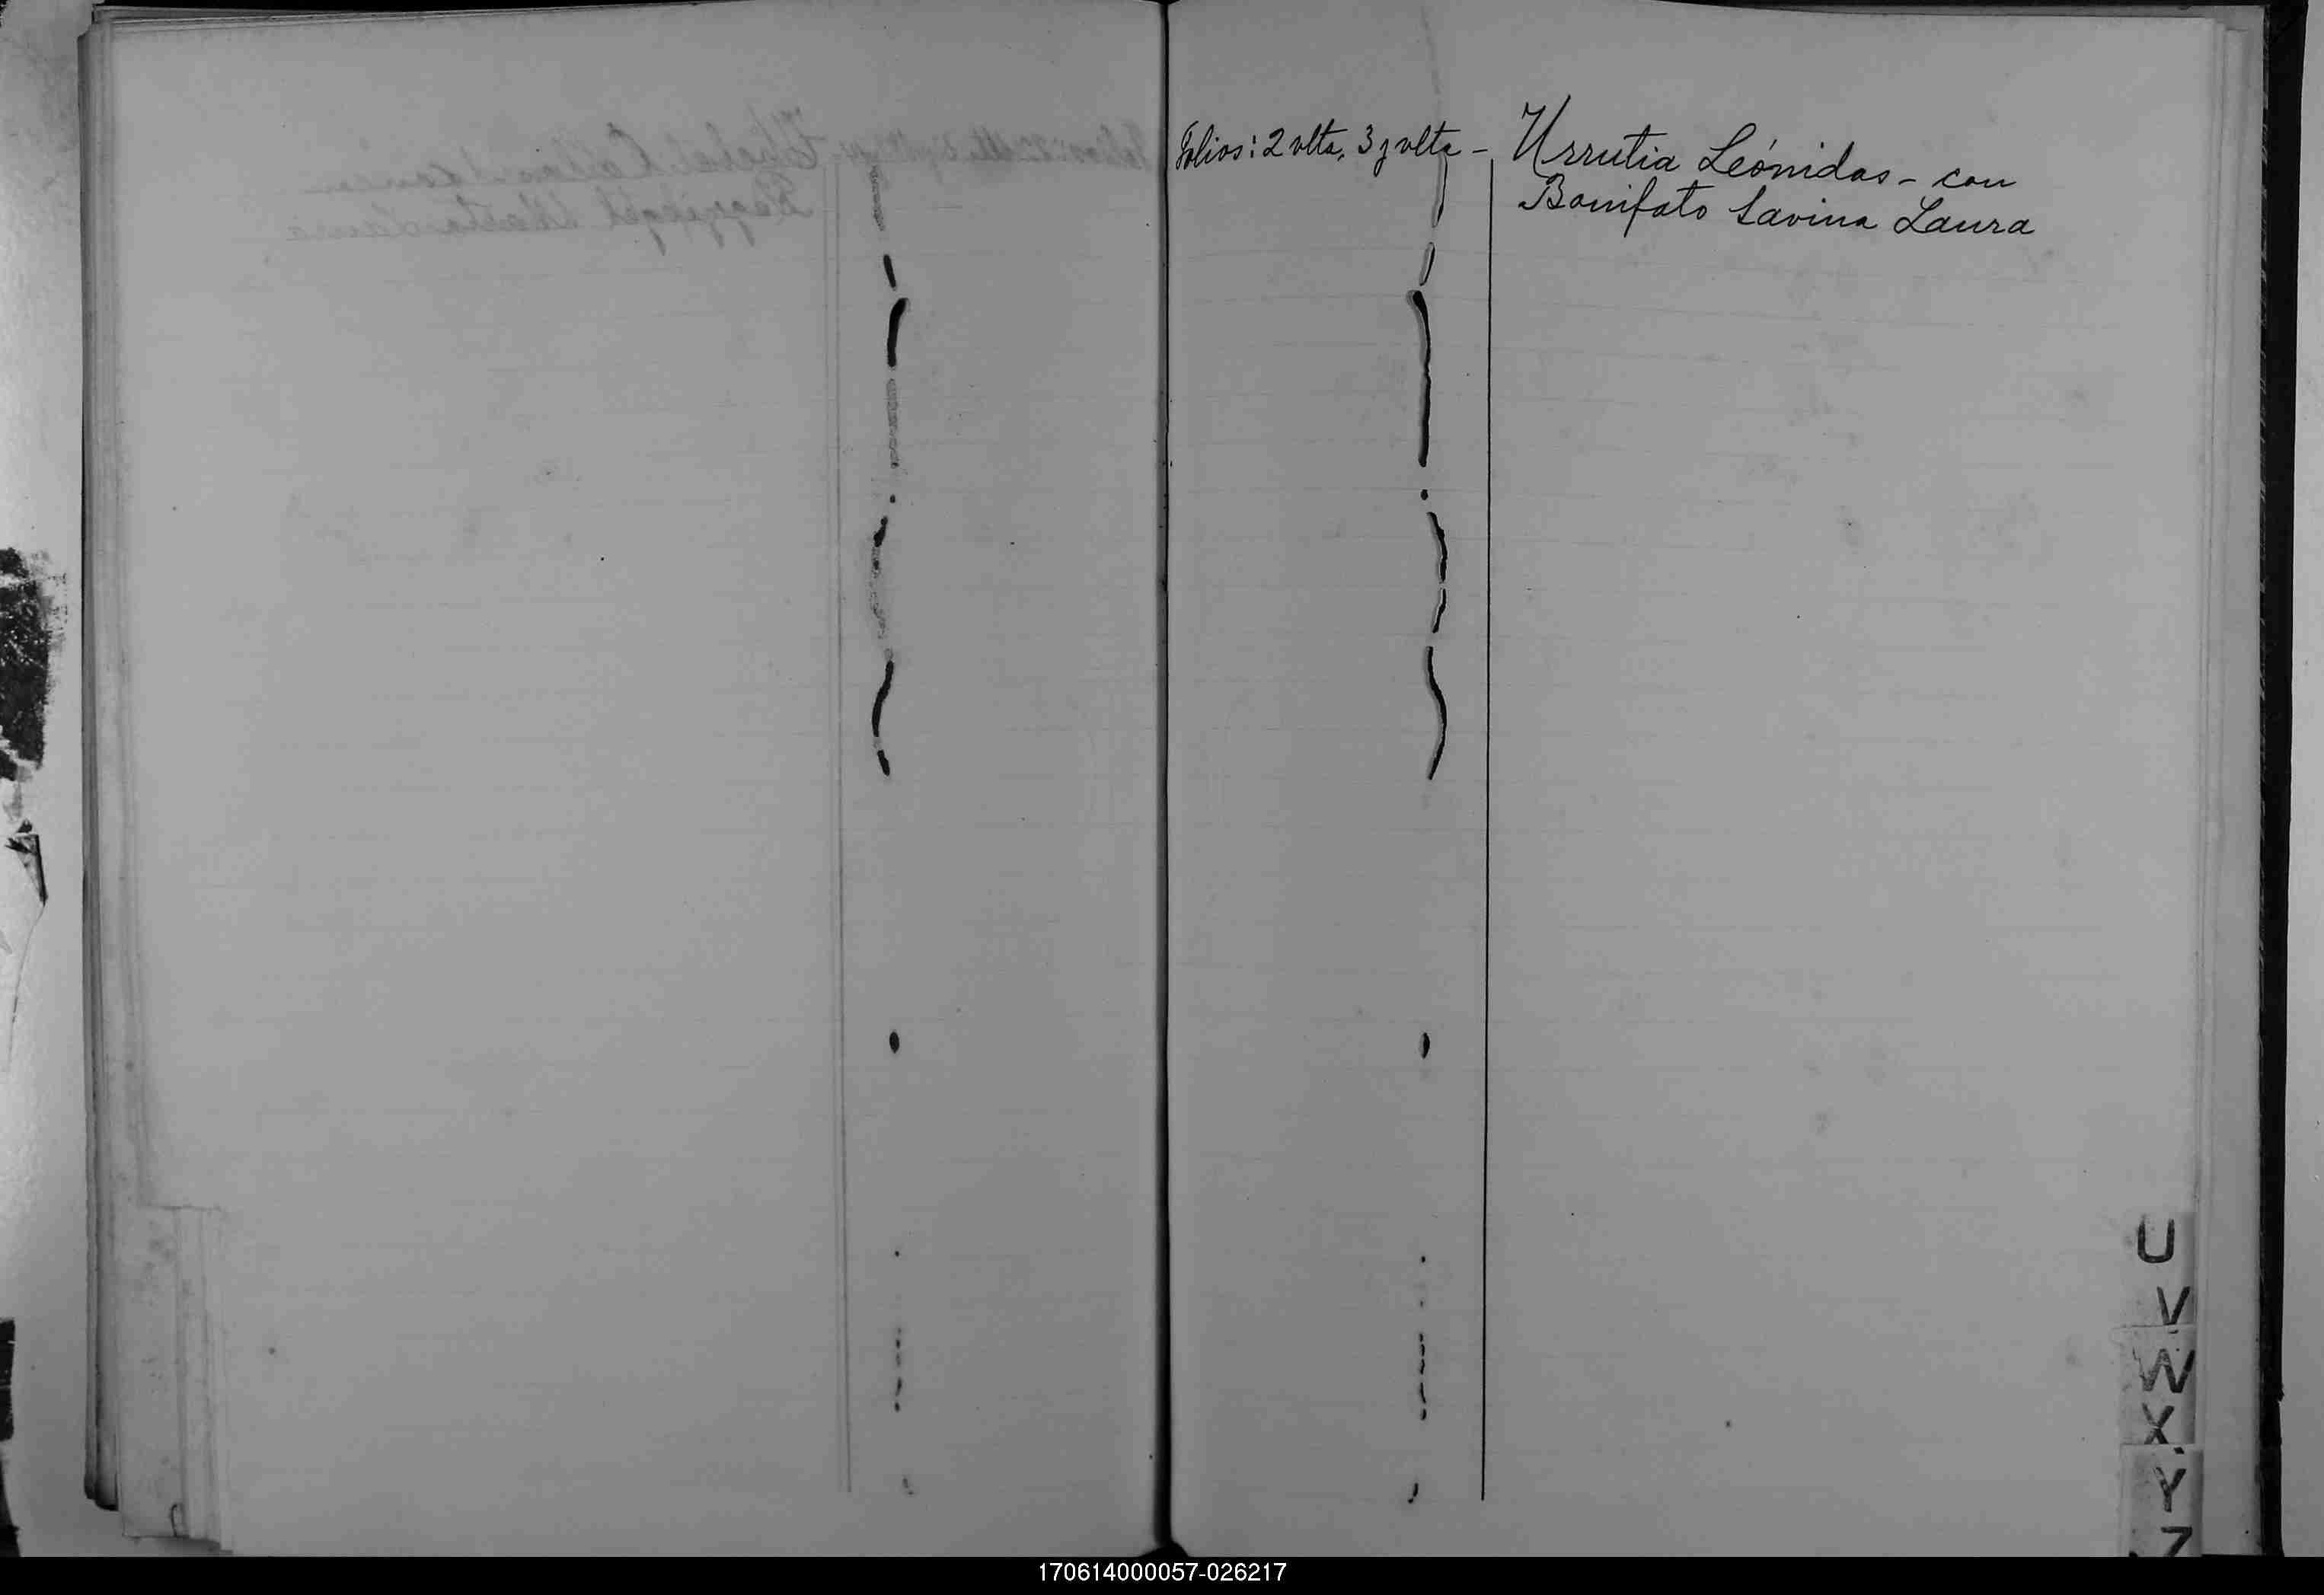 Folios: 2 vlta, 3 y vlta - Urrutia Leónidas - con
Bonifato Savina Laura
U
V
W
X
Y
Z
170614000057-026217